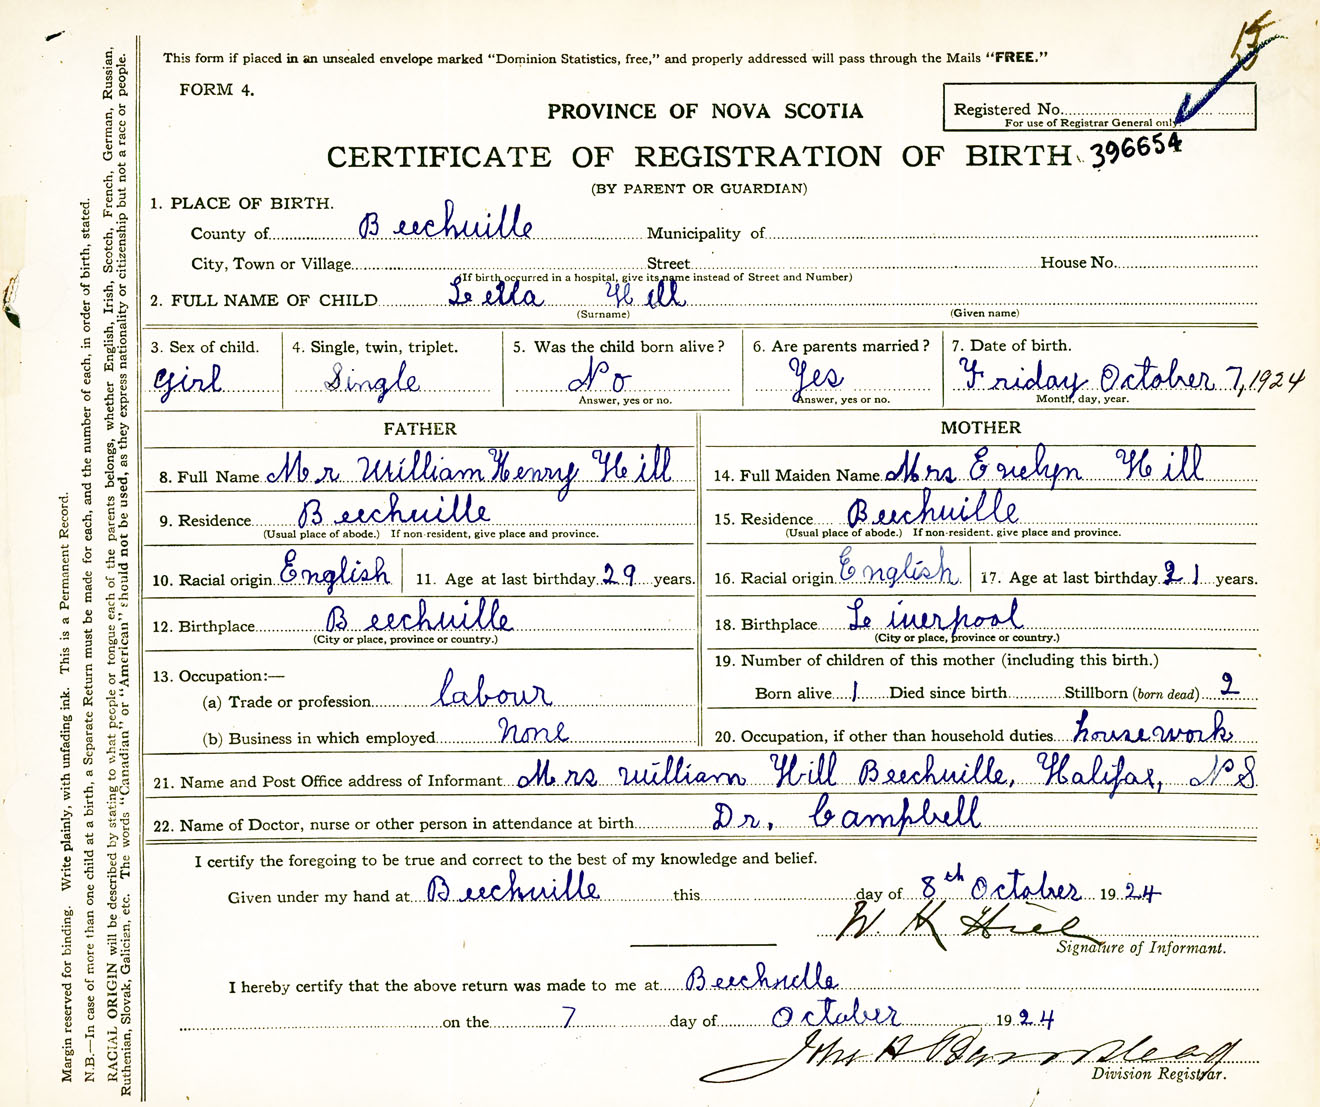 15
This form if placed in an unsealed envelope marked "Dominion Statistics, free," and properly addressed will pass through the Mails "FREE."
FORM 4.
PROVINCE OF NOVA SCOTIA
Registered No.
For use of Registrar General only.
CERTIFICATE OF REGISTRATION OF BIRTH 396654
(BY PARENT OR GUARDIAN)
1. PLACE OF BIRTH.
County of Beechville Municipality of
City, Town or Village Street House No.
(If birth occurred in a hospital, give its name instead of Street and Number)
2. FULL NAME OF CHILD Lella Hill
(Surname) (Given name)
3. Sex of child. 4. Single, twin, triplet. 5. Was the child born alive? 6. Are parents married? 7. Date of birth.
Girl Single No Yes Friday October 7, 1924
Answer, yes or no. Answer, yes or no. Month, day, year.
FATHER MOTHER
8. Full Name Mr William Henry Hill 14. Full Maiden Name Mrs Evelyn Hill
9. Residence Beechville 15. Residence Beechville
(Usual place of abode.) If non-resident, give place and province. (Usual place of abode.) If non-resident. give place and province.
10. Racial origin English 11. Age at last birthday 29 years. 16. Racial origin English 17. Age at last birthday 21 years.
12. Birthplace Beechville 18. Birthplace Liverpool
(City or place, province or country.) (City or place, province or country.)
13. Occupation:— 19. Number of children of this mother (including this birth.)
(a) Trade or profession labour Born alive 1 Died since birth Stillborn (born dead) 2
(b) Business in which employed None 20. Occupation, if other than household duties housework
21. Name and Post Office address of Informant Mrs William Hill Beechville, Halifax, N S
22. Name of Doctor, nurse or other person in attendance at birth Dr, Campbell
I certify the foregoing to be true and correct to the best of my knowledge and belief.
Given under my hand at Beechville this day of 8th October 1924
W. H Hill
Signature of Informant.
I hereby certify that the above return was made to me at Beechville
on the 7 day of October 1924
John A
Division Registrar.
Margin reserved for binding. Write plainly, with unfading ink. This is a Permanent Record.
N.B.—In case of more than one child at a birth, a Separate Return must be made for each, and the number of each, in order of birth, stated.
RACIAL ORIGIN will be described by stating to what people or tongue each of the parents belongs, whether English, Irish, Scotch, French, German, Russian,
Ruthenian, Slovak, Galician, etc. The words "Canadian" or "American" should not be used, as they express nationality or citizenship but not a race or people.